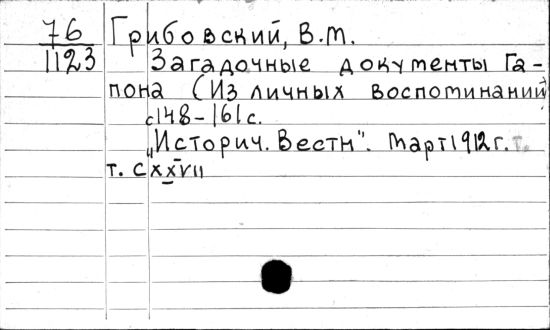 76 Грибовский, В.М.
1123 Загадочные документы Га-
пона (Из личных воспоминаний)
с148-161с.
„Историч. Вестн". Март 1912г. т.
т. CXXVII